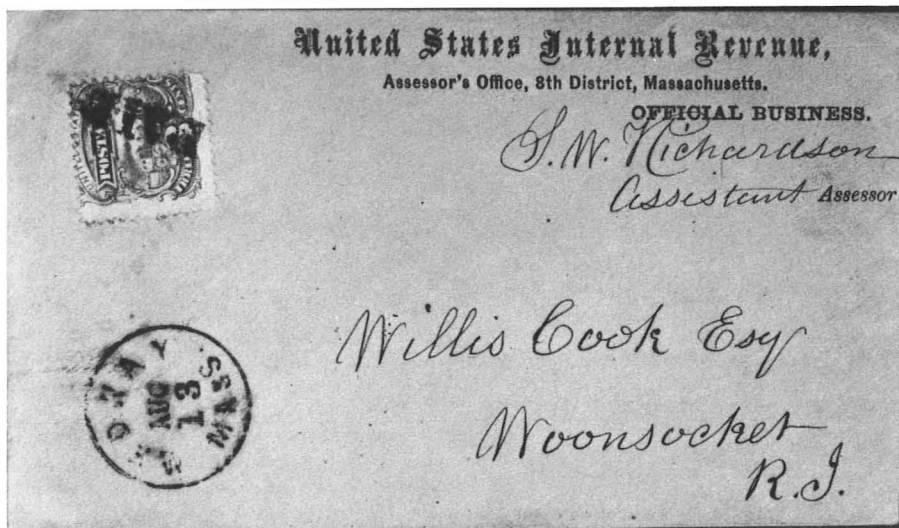 United States Internal Revenue,
Assessor's Office, 8th District, Massachusetts.
OFFICIAL BUSINESS.
S. W. Richardson
Assistant Assessor
Willis Cook Esq
Woonsocket
R.I.
MEDWAY MASS.
AUG
13